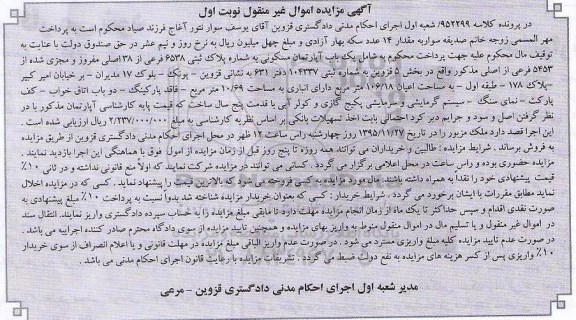 آگهی مزایده اموال غیر منقول نوبت اول
در پرونده کلاسه ۹۵۲۲۹۹/ شعبه اول اجرای احکام مدنی دادگستری قزوین آقای یوسف سوار نتور آغاج فرزند صیاد محکوم است به پرداخت
مهر المسمی زوجه خانم صدیقه مواریه بمقدار ۱۴ عدد سکه بهار آزادی و مبلغ چهل میلیون ریال به نرخ روز و نیم عشر در حق صندوق دولت با عنایت به
توقیف مال محکوم علیه جهت پرداخت محکوم به شامل یکباب آپارتمان مسکونی به شماره پلاک ثبتی ۶۵۳۸ فرعی از ۳۸ اصلی مفروز و مجزی شده از
۵۴۵۳ فرعی از اصلی مذکور واقع در بخش ۵ قزوین به شماره ثبتی ۱۰۴۳۳۷ دفتر ۶۳۱ به نشانی قزوین - پونک - بلوک ۱۷ مدیران - بر خیابان امیر کبیر
-پلاک ۱۷۸ - طبقه اول - به مساحت اعیان ۱۰۶/۱۸ متر مربع دارای انباری به مساحت ۱۰/۶۹ متر مربع - فاقد پارکینگ - دو باب اتاق خواب - کف
پارکت - نمای سنگ - سیستم گرمایشی و سرمایشی پکیج گازی و کولر آبی با قدمت پنج سال ساخت که قیمت پایه کارشناسی آپارتمان مذکور با در
نظر گرفتن اصل و سود و جرایم دیر کرد احتمالی بابت اخذ تسهیلات بانکی بر اساس نظریه کارشناسی به مبلغ ۲/۲۳۷/۰۰۰/۰۰۰ ریال ارزیابی شده است .
این اجرا قصد دارد ملک مزبور را در تاریخ ۱۳۹۵/۱۱/۲۷ روز چهارشنبه راس ساعت ۱۲ ظهر در محل اجرای احکام مدنی دادگستری قزوین از طریق مزایده
به فروش برساند . شرایط مزایده : طالبین و خریداران می توانند همه روزه تا پنج روز قبل از زمان مزایده از اموال فوق با هماهنگی این اجرا بازدید نمایند .
مزایده حضوری بوده و راس ساعت در محل اعلامی برگزار می گردد . کسانی می توانند در مزایده شرکت نمایند که اولاً منع قانونی نداشته و در ثانی ۱۰٪
قیمت پیشنهادی خود را نقداً به همراه داشته باشند. مال مورد مزایده به کسی فروخته می شود که بالاترین قیمت را پیشنهاد نماید . کسی که در مزایده اخلال
نماید مطابق مقررات با ایشان برخورد می گردد . شرایط خریدار : کسی که بعنوان خریدار مزایده شناخته شد بدواً نسبت به پرداخت ۱۰٪ مبلغ پیشنهادی به
صورت نقدی اقدام و سپس حداکثر تا یک ماه از زمان انجام مزایده مهلت دارد تا مابقی مبلغ مزایده را به حساب سپرده دادگستری واریز نمایند. انتقال سند
در اموال غیر منقول و یا تسلیم مال در اموال منقول منوط به واریز بهای مزایده و همچنین تایید مزایده از سوی دادگاه محترم صادر کننده اجراییه می باشد .
در صورت عدم تایید مزایده کلیه مبلغ واریزی مسترد می شود . در صورت عدم واریز الباقی مبلغ مزایده در مهلت قانونی و یا اعلام انصراف از سوی خریدار
۱۰٪ واریزی پس از کسر هزینه های مزایده به نفع دولت ضبط می گردد . تشریفات مزایده با رعایت قانون اجرای احکام مدنی می باشد .
مدیر شعبه اول اجرای احکام مدنی دادگستری قزوین - مرعی